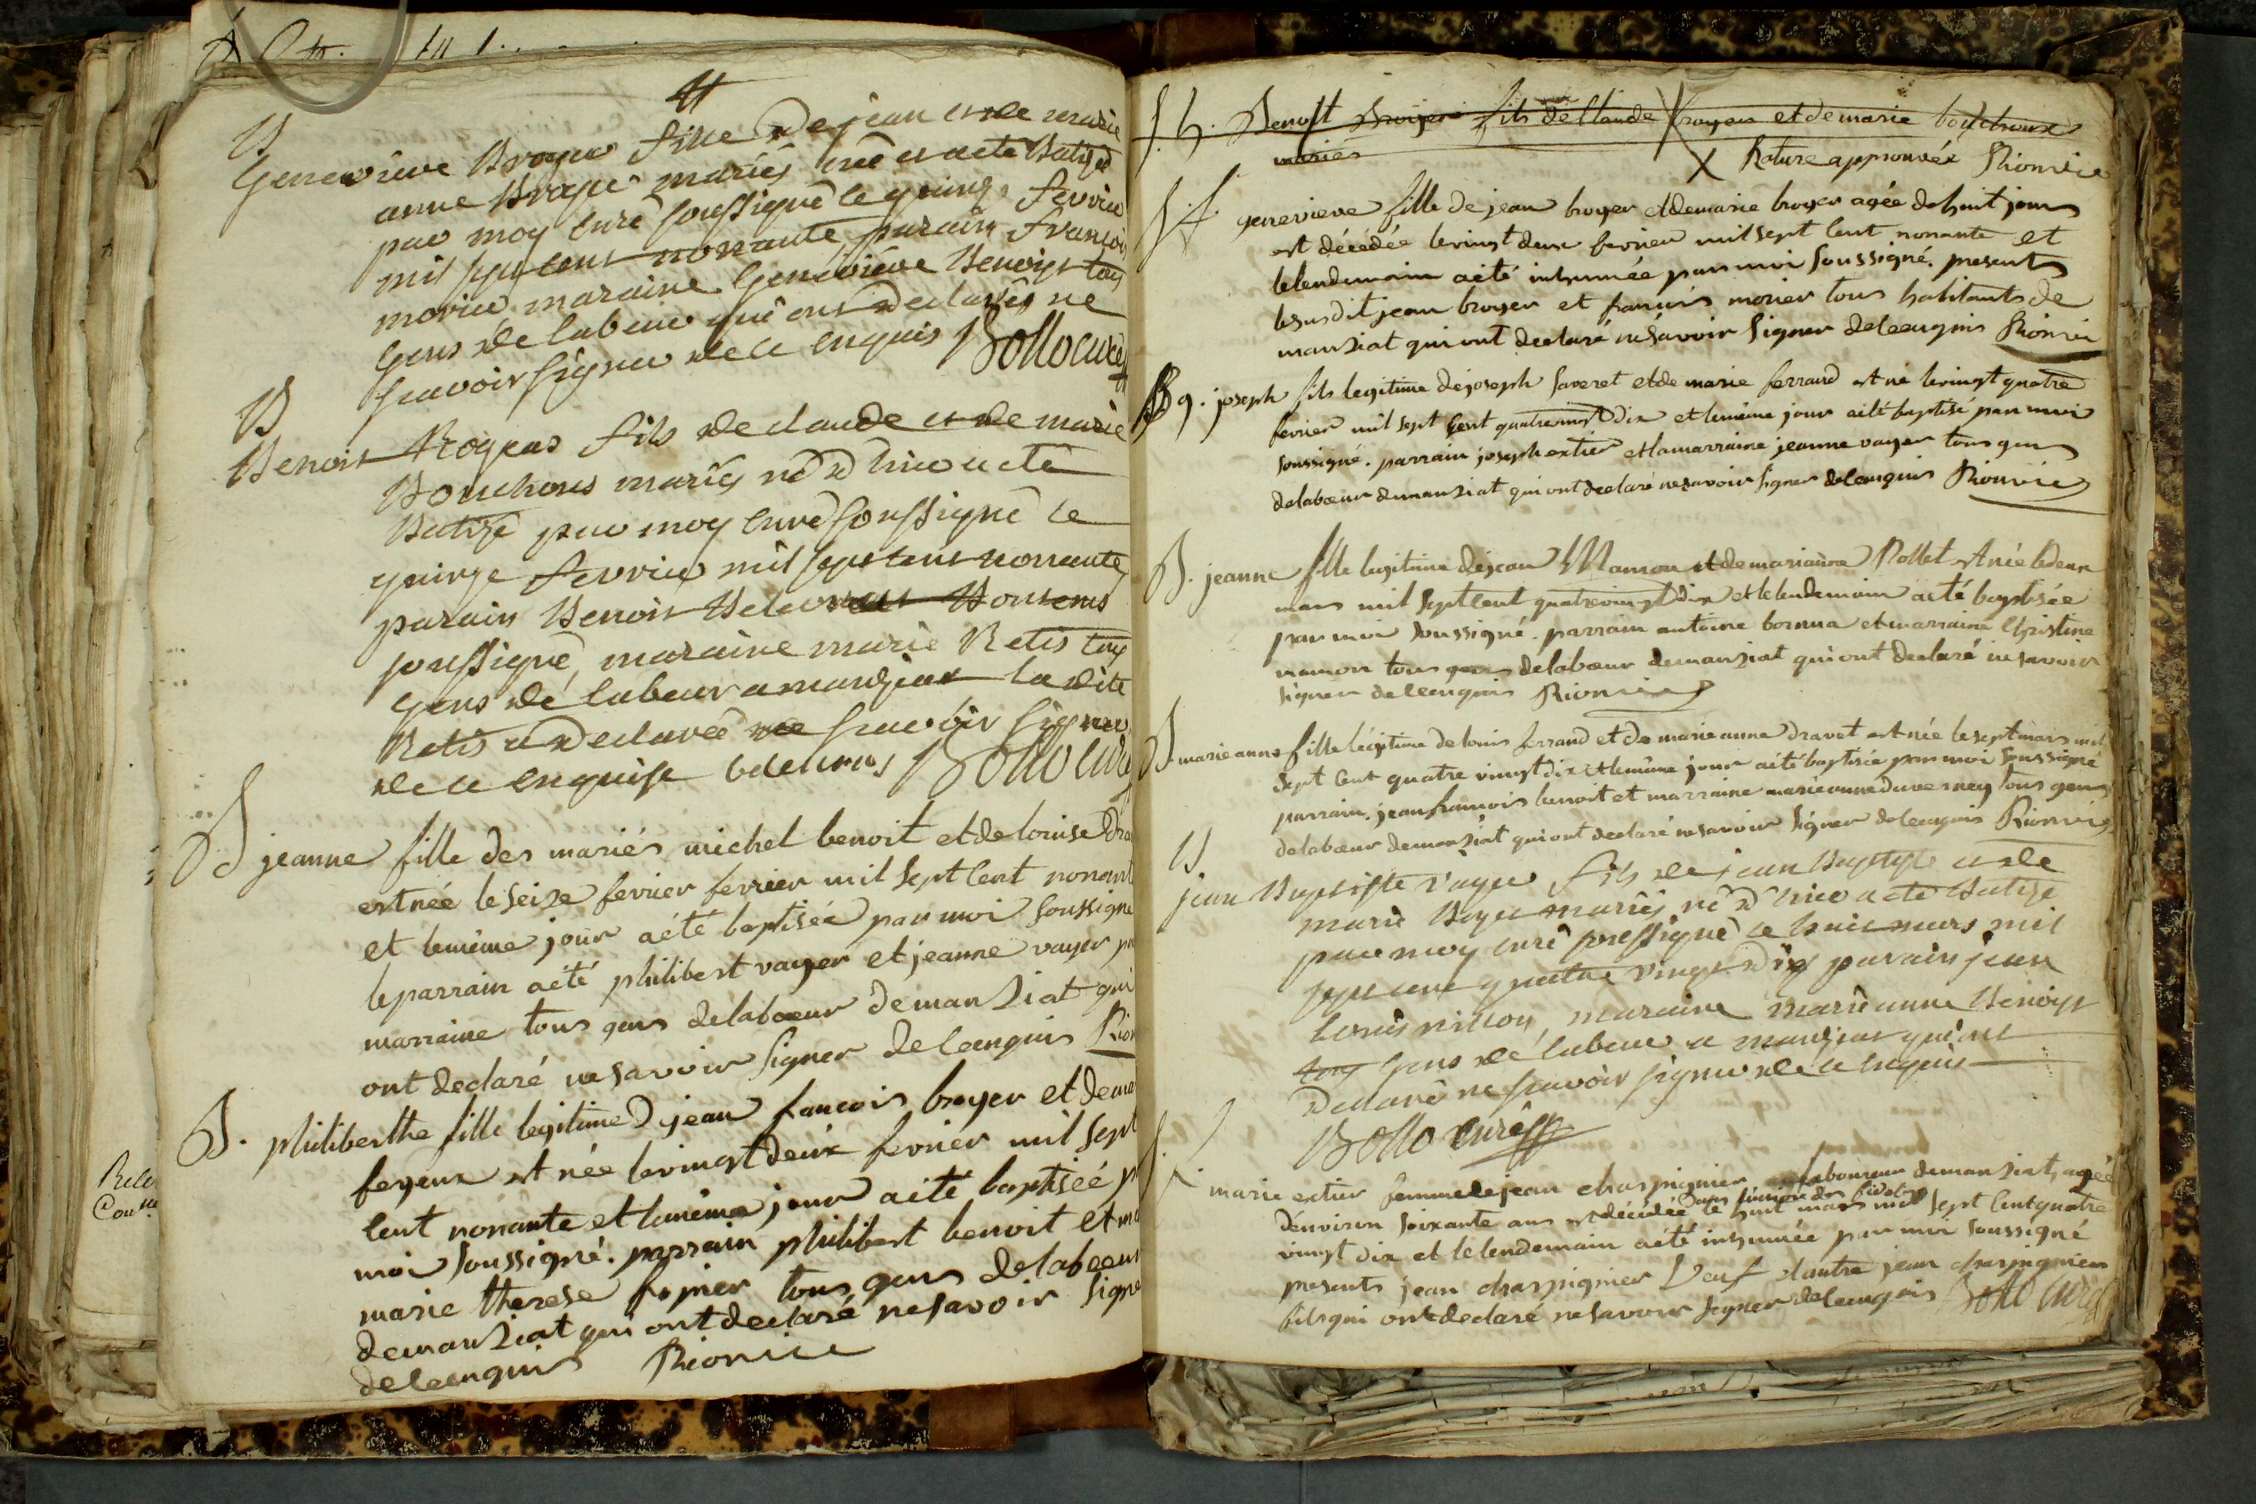 B
Genevieve Broyer fille de jean et de marie
anne Broyé mariés née et a eté Batizé
par moy curé soussigné le quinze fevrier
mil sept cent nonante parain François
morier maraine Genevieve Benoist tous
Gens de labeur qui ont declarés ne
scavoir signer de ce enquis Bollo curé
B
Benoit Royeas fils de claude et de marie
Bouchoux mariés né d'hier a eté
Batizé par moy curé soussigné le
quinze fevrier mil sept cent nonante
parain Benoit
soussigné, maraine marie Retis tous
Gens de labeur a manziat la dite
Retis a declaré ne scavoir signer
de ce enquise Bollo curé
B jeanne fille des mariés michel benoit et de louise
est née le seize fevrier fevrier mil sept cent nonant
et le même jour a été baptisée par moi soussigné
le parrain a été philibert vayer et jeanne vayer
marraine tous gens de labœur de manziat qui
ont declaré ne savoir signer de ce enquis Rion
B. philiberthe fille legitime d jean francois broyer et de
feyeux est née le vingt deux fevrier mil sept
cent nonante et le même jour a été baptisée
moi soussigné. parrain philibert benoit et
marie therese tous gens de labœur
de manziat qui ont declaré ne savoir signe
de ce enquis Rionvie
S. h. Benoit Broyer fils de Claude broyer et de marie bouchoux
mariés
X Rature approuvée Rionvie
genevieve fille de jean broyer et de marie broyer agée de huit jours
est décédée le vingt deux fevrier mil sept cent nonante et
le lendemain a été inhumée par moi soussigné. presents
le susdit jean broyer et francois morier tous habitants de
manziat qui ont declaré ne savoir signer de ce enquis Rionvie
B 9. joseph fils legitime de joseph saveret et de marie ferrand est né le vingt quatre
fevrier mil sept cent quatre vingt dix et le même jour a été baptisé par moi
soussigné. parrain joseph extier et la marraine jeanne vayer tous gens
de labœur de manziat qui ont declaré ne savoir signer de ce enquis Rionvie
B. jeanne fille legitime de jean Mamon et de marianne Rollet est née le deux
mars mil sept cent quatre vingt dix et le lendemain a été baptisée
par moi soussigné. parrain antoine bornua et marraine Christine
mamon tous gens de labœur de manziat qui ont declaré ne savoir
signer de ce enquis Rionvie
B. marie anne fille légitime de louis ferrand et de marie anne dravet est née le sept mars mil
sept cent quatre vingt dix et le même jour a été baptisée par moi soussigné
parrain jean francois benoit et marraine marie anne duverney tous gens
de labœur de manziat qui ont declaré ne savoir signer de ce enquis Rionvie
B
jean Baptiste vayer fils de jean Baptiste et de
marie Boyer mariés né d'hier a eté Batizé
par moy curé soussigné le huit mars mil
sept cent quatre vingt dix parain jean
Louis nillon, maraine marie anne Benoist
tous Gens de labeur a manziat qui ont
declaré ne scavoir signer de ce enquis
Bollo curé
marie extier femme de jean charpignier laboureur de manziat, agée
d'environ soixante ans est décédée le huit mars mil sept cent quatre
vingt dix et le lendemain a été inhumée par moi soussigné
presents jean charpignier veuf et autre jean charpignier
fils qui ont declaré ne savoir signer de ce enquis Bollo curé